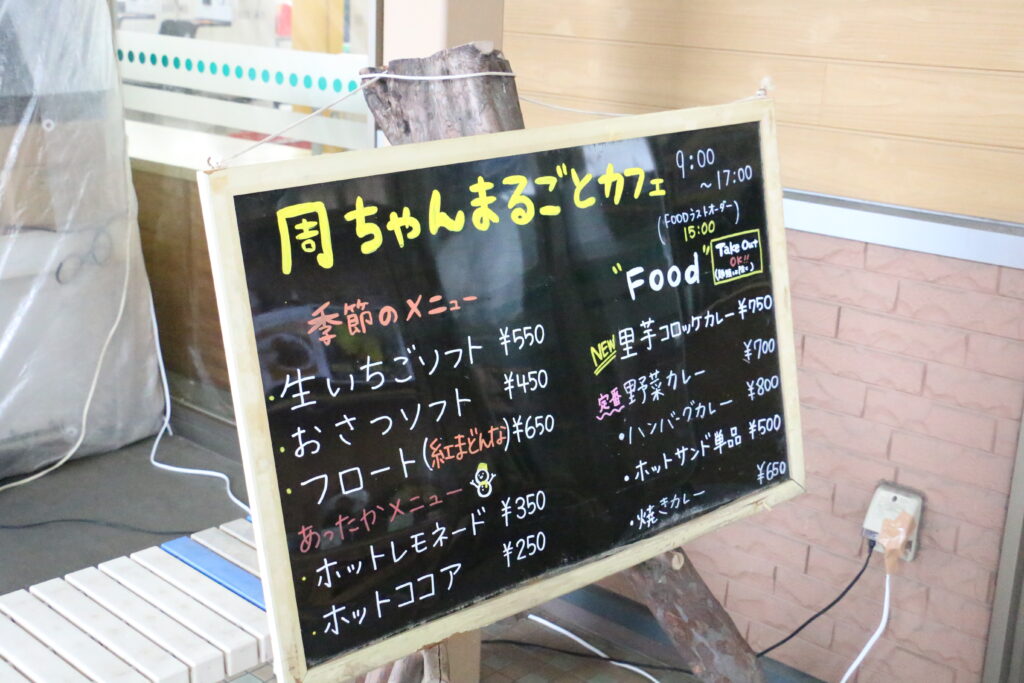 周ちゃんまるごとカフェ
9:00
～17:00
(FOODラストオーダー)
15:00
季節のメニュー
・生いちごソフト ¥550
・おさつソフト ¥450
・フロート(紅まどんな) ¥650
あったかメニュー
・ホットレモネード ¥350
・ホットココア ¥250
"Food"
Take Out
OK!!
NEW 里芋コロッケカレー ¥750
定番 野菜カレー ¥700
・ハンバーグカレー ¥800
・ホットサンド単品 ¥500
・焼きカレー ¥650